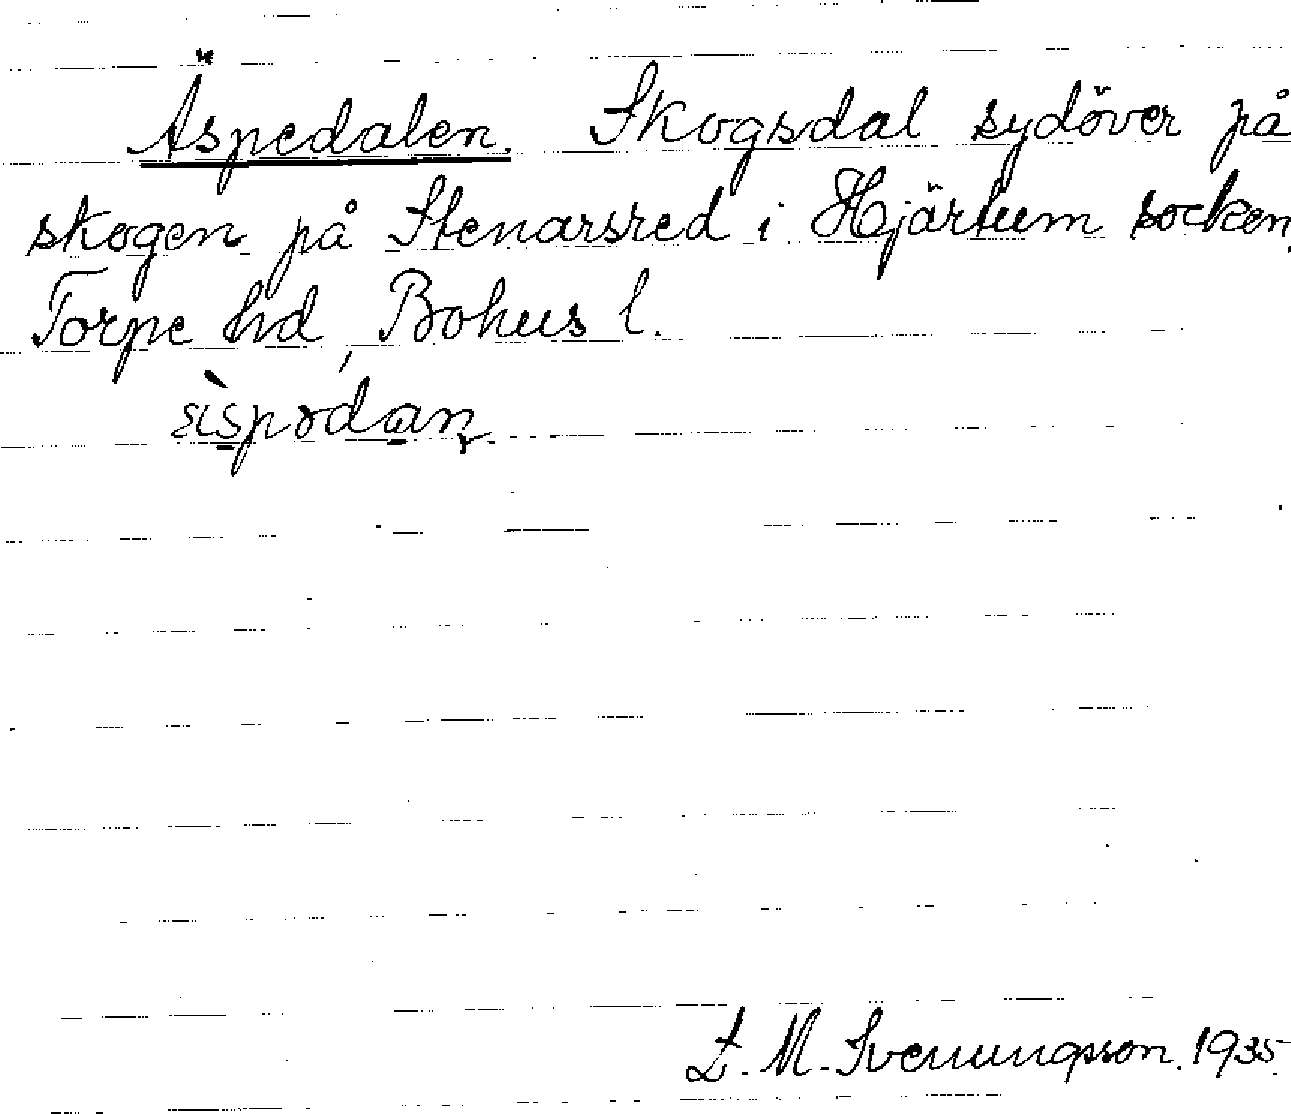 Äspedalen. Skogsdal sydöver på
skogen på Stenarsred i Hjärtum socken,
Torpe hd, Bohus l.
L. M. Svenungsson. 1935